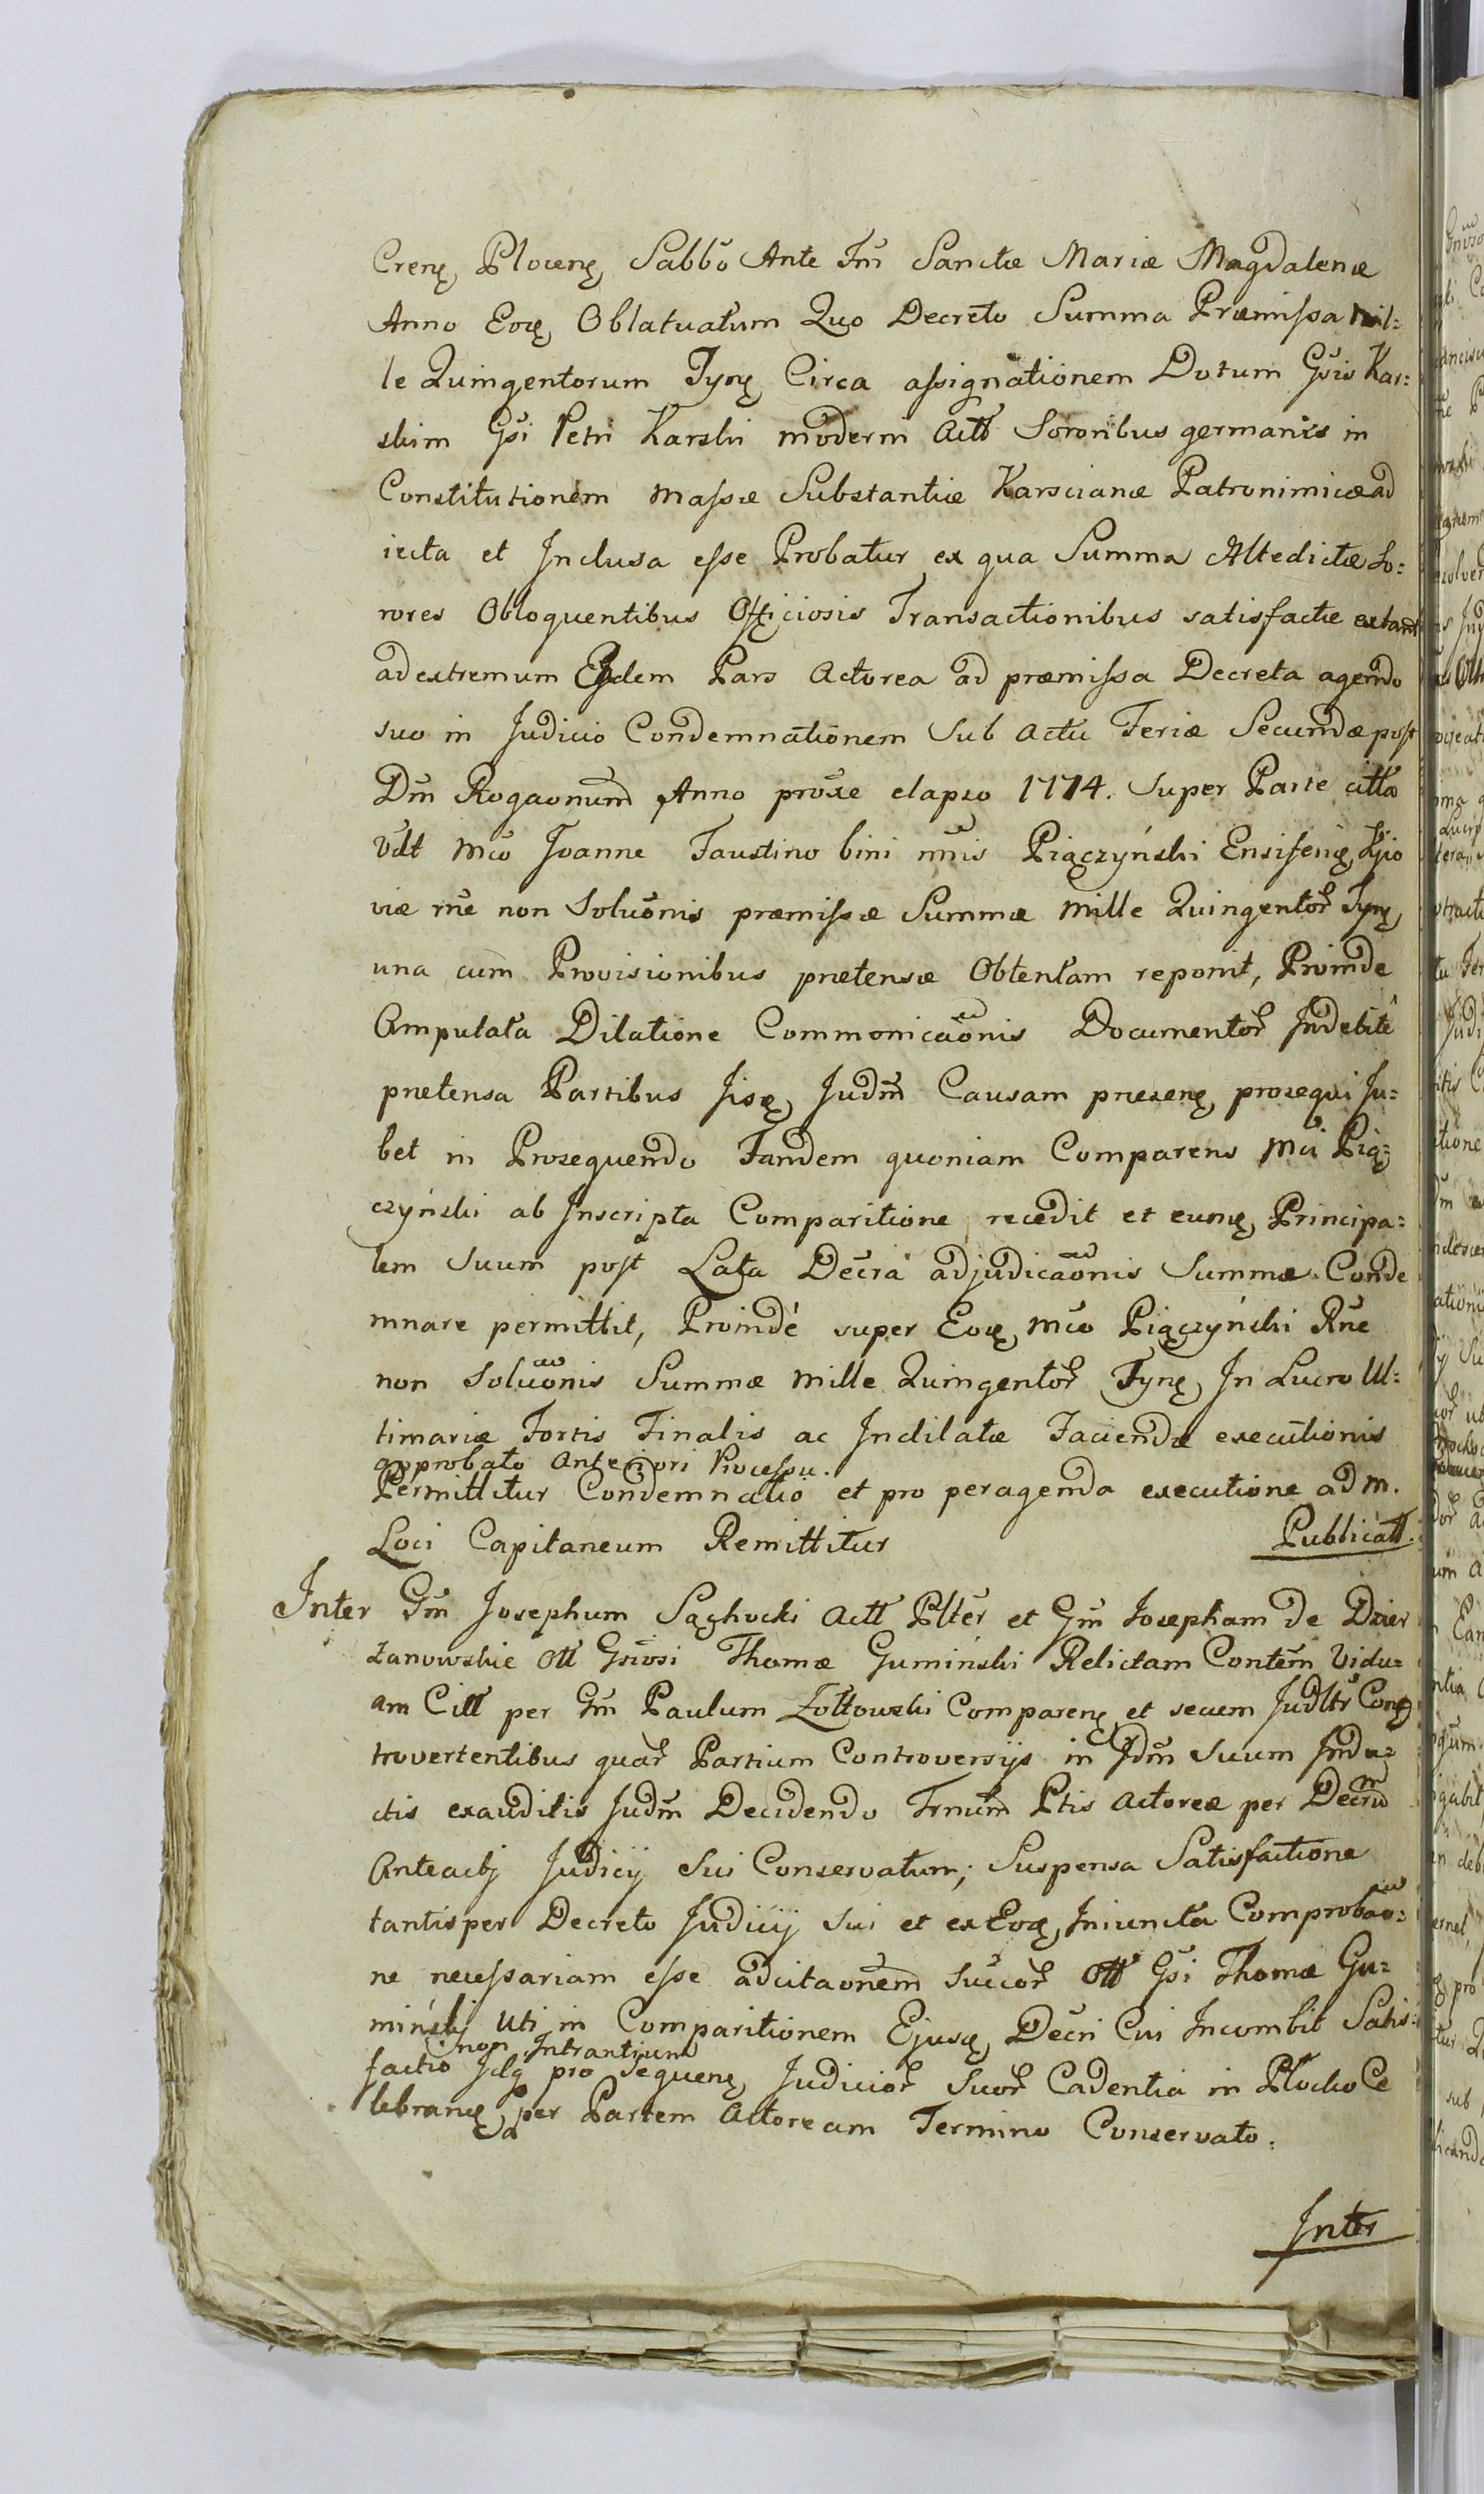 Crenę Plocenę Sabbō Ante Fm̄ Sanctæ Mariæ Magdalenæ
Anno Eoę Oblatuatum Quo Decreto Summa Præmissa Mil=
le Quingentorum Tynę Circa assignationem Dotum Gsis Kar=
skim Gsi Petri Karski moderni Actt Sororibus germanis in
Constitutionem Massæ Substantiæ Karscianæ Patronimicæ ad
iecta et Inclusa esse Probatur ex qua Summa Altedictæ So=
rores Obloquentibus Officiosis Transactionibus satisfactæ extant
ad extremum Eadem Pars Actorea ad præmissa Decreta agendo
suo in Judicio Condemnationem Sub Actu Feriæ Secundæ post
Dm̄ Rogaonum Anno proxe elapso 1774. Super Parte citta
Vdt Mco Joanne Faustino bini nnis Piączyński Ensiferię Kjio
viæ rne non Soluonis præmissæ Summæ Mille Quingentor Tynę
una cum Provisionibus prætensæ Obtentam reponit, Proinde
Amputata Dilatione Commonicaonis Documentor Indebite
prætensa Partibus Jisę Judm Causam præsenę prosequi Ju=
bet in Prosequendo Tandem quoniam Comparens Mci Pią=
czyński ab Inscripta Comparitione recedit et eumę Principa=
lem Suum post Lata Decra adjudicaonis Summæ Conde
mnare permittit, Proindé super Eoę Mco Piączyński Rne
non Soluonis Summæ Mille Quingentor Tynę In Lucro Ul=
timariæ Fortis Finalis ac Indilatæ Faciendæ executionis
approbato Anteriori Processu.
Permittitur Condemnatio et pro peragenda executione ad M.
Loci Capitaneum Remittitur Publicatt.
Inter Gm Josephum Sąchocki Actt Plter et Gm Josepham de Dzier
żanowskie Ott Gsiosi Thomæ Gumiński Relictam Contem Vidu=
am Citt per Gm Paulum Żółtowski Comparenę et secum Judltr Conę
trovertentibus quar Partium Controversijs in Jdm Suum Indu=
ctis exauditis Judm Decidendo Trnum Ptis Actoreæ per Decru
Anteactj Judicij Sui Conservatum; Suspensa Satisfactione
tantisper Decreto Judicij Sui et ex Eoę Iniuncta Comprobao=
ne necessariam esse adcitaonem Succor Ott Gsi Thomæ Gu=
miński uti in Comparitionem Ejusę Decri Cui Incombit Satis=
non Intrantium
factio Jdq pro Sequenę Judicior Suor Cadentia in Plocko Ce
lebranę per Partem Actoream Termino Conservato.
Inter